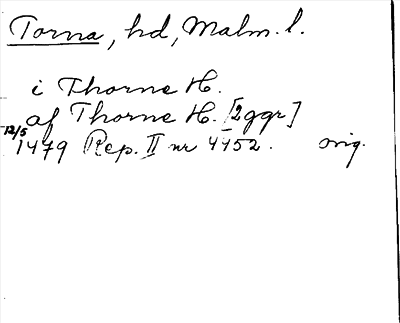 Torna, hd, Malm. l.
i Thorne H.
af Thorne H. [2ggr]
12/5 1479 Rep. II nr 4452. orig.